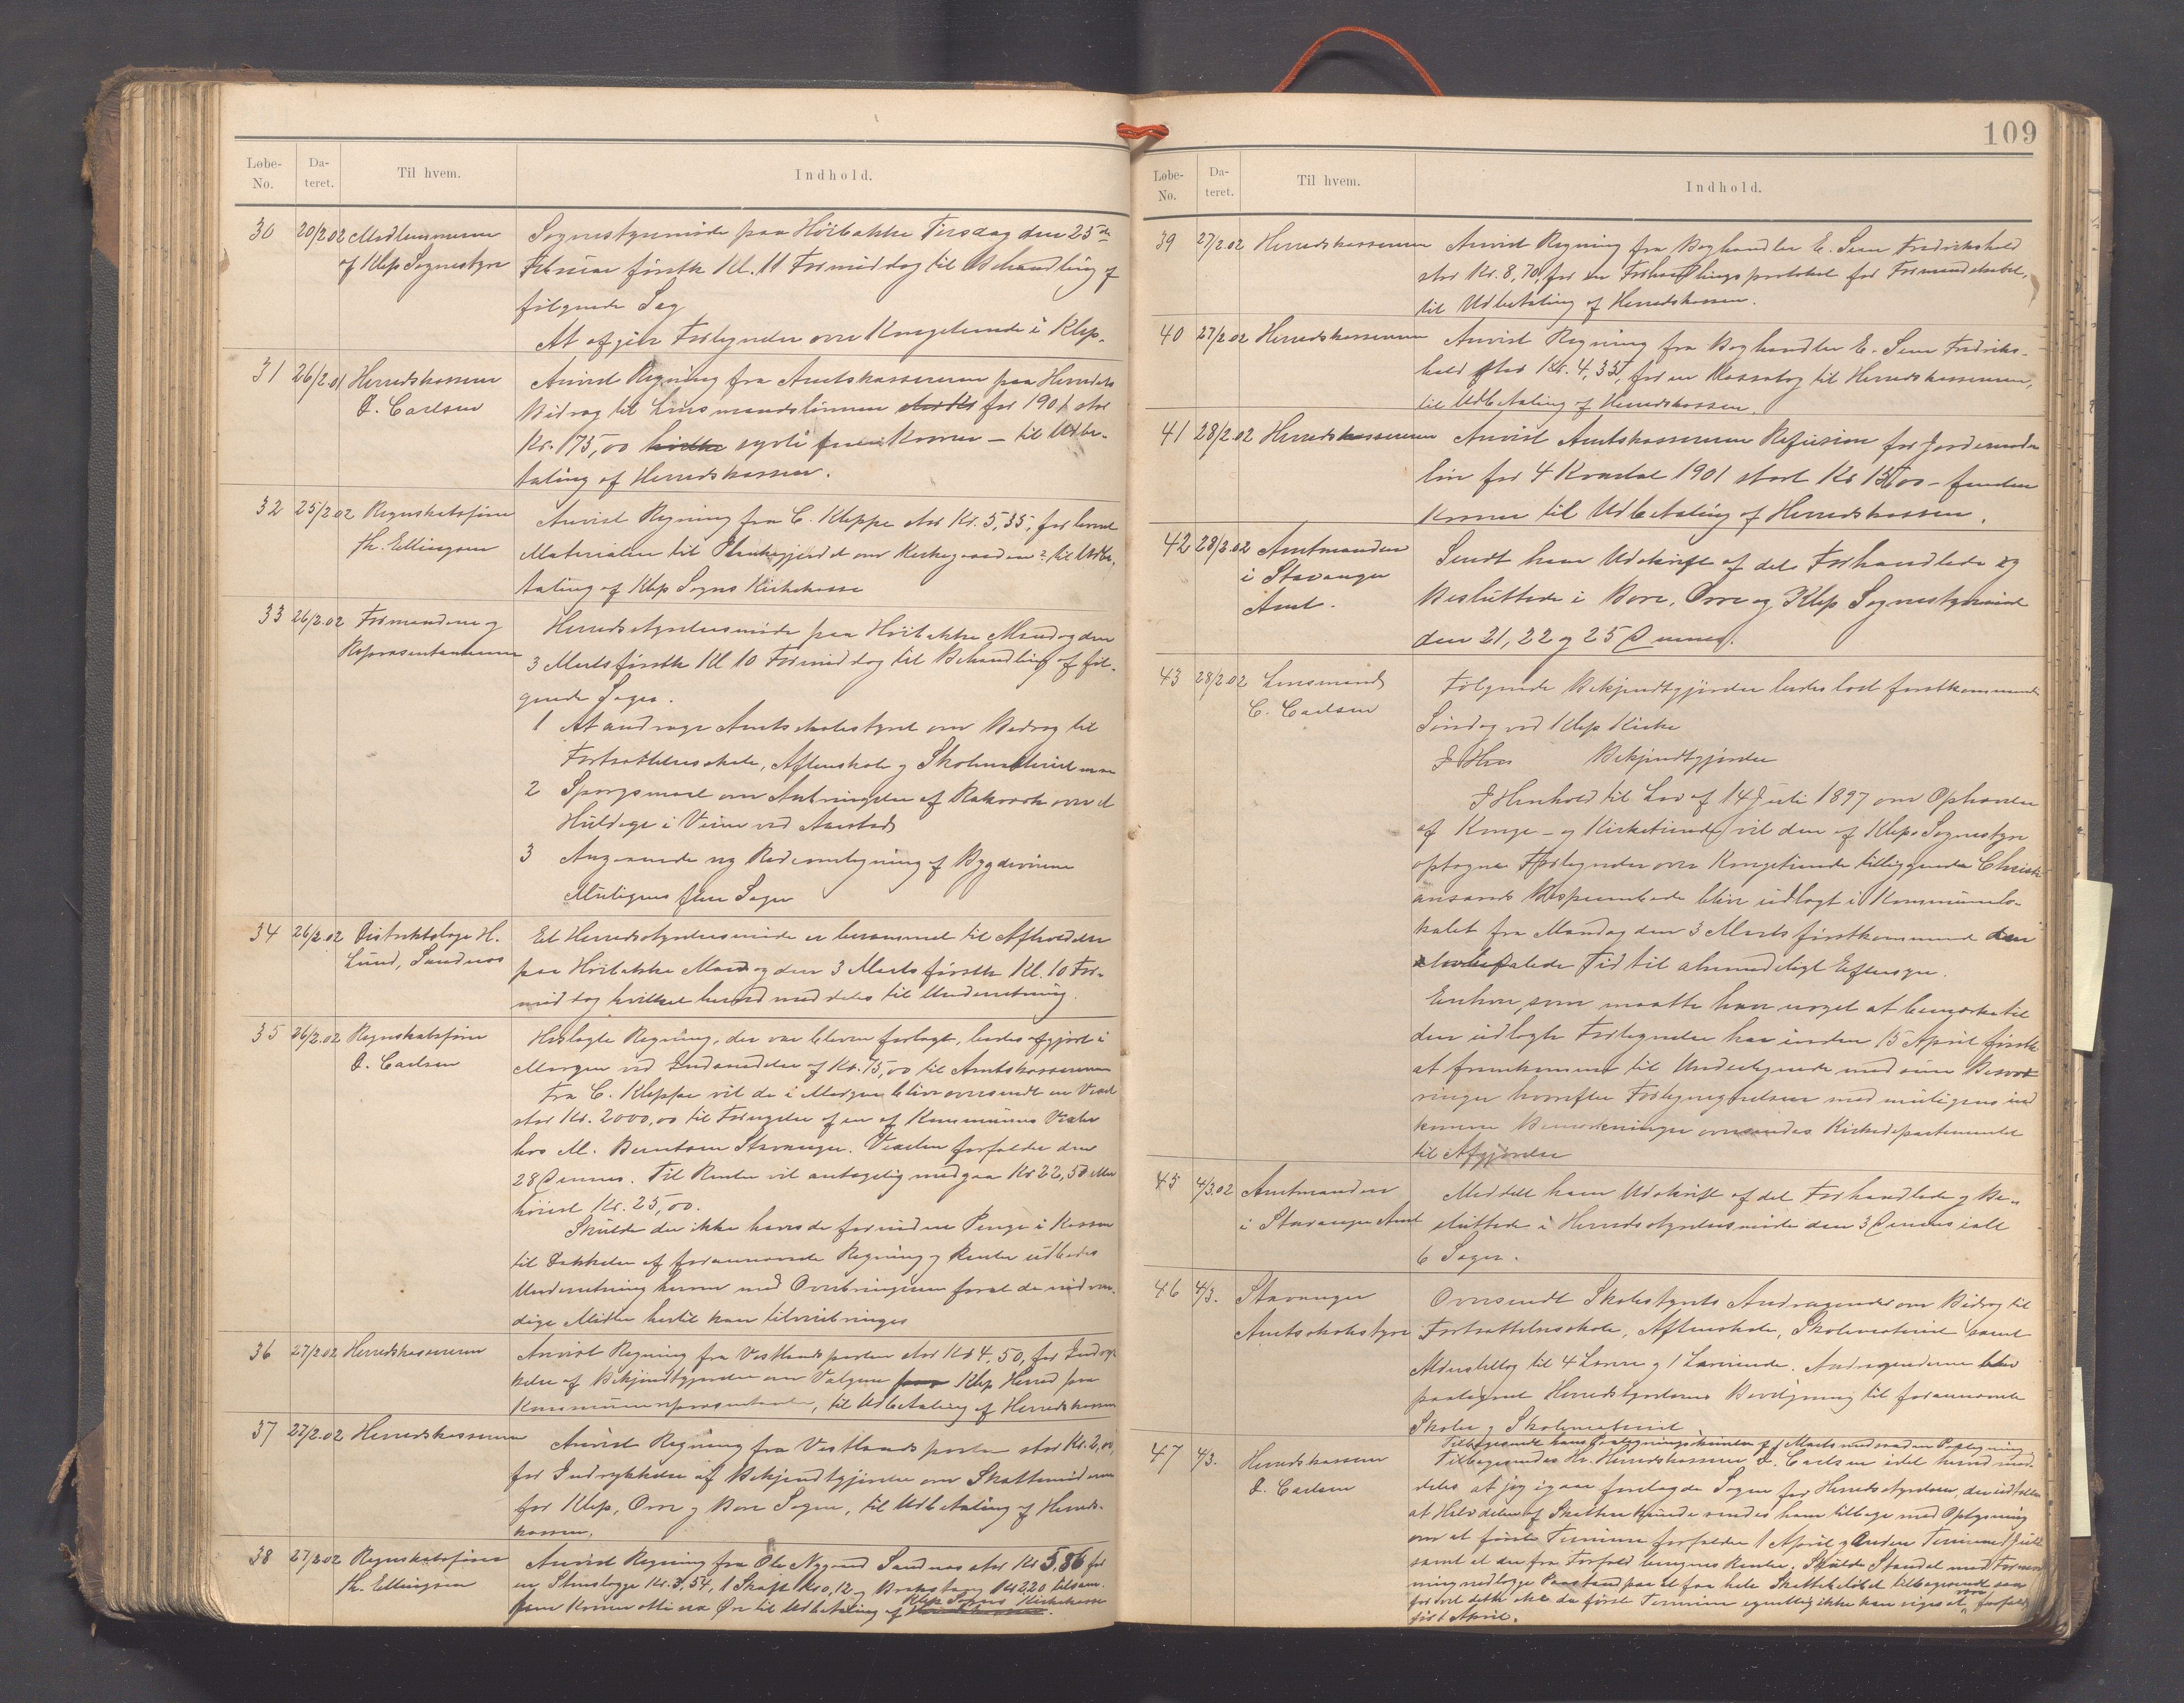 Løbe-No. Da-teret. Til hvem. Indhold.
30 20/2.02 Medlemmerne af Klep Sognestyre
Sognestyremøde paa Høibakke Tirsdag den 25de
Februar førstk Kl. 11 Formiddag til Behandling af
følgende Sag
At afgive Forslag over Kongetiende i Klep.
31 26/2.01 Herredskasserer O. Carlsen
Anvist Regning fra Amtskassereren paa Herredets
Bidrag til Lensmandslønnen for 1901 stor
Kr. 175,00 sytti fem Kroner – til Udbe-
taling af Herredskassen.
32 25/2.02 Regnskabsfører Th. Ellingsen
Anvist Regning fra C. Kleppe stor Kr. 5,35, for leveret
Materialier til Plankegjerdet om Kirkegaarden til Udbe-
taling af Klep Sogns Kirkekasse
33 26/2.02 Formændene og Repræsentanterne
Herredsstyrelsesmøde paa Høibakke Mandag den
3 Marts førstk Kl 10 Formiddag til Behandling af føl-
gende Sager.
1 At andrage Amtsskolestyret om Bidrag til
Fortsættelsesskole, Aftenskole og Skolemateriel m.m
2 Spørgsmaal om Anbringelse af Rækværk over et
i Veien ved
3 Angaaende ny Rodeomlægning af Bygdeveiene
Muligens flere Sager
34 26/2.02 Distriktslæge H. Lund, Sandnes
Et Herredsstyrelsesmøde er berammet til Afholdelse
paa Høibakke Mandag den 3 Marts førstk Kl. 10 For-
middag hvilket herved meddeles til Underretning.
35 26/2.02 Regnskabsfører O. Carlsen
Hoslagte Regning, der var bleven forlagt, bedes afgjort i
Morgen ved Indsendelse af Kr. 75,00 til Amtskassereren
Fra C. Kleppe vil de i Morgen blive oversendt en Vexel
stor Kr. 2000,00 til Fornyelse af en af Kommunens Vexler
hos M. Berntsen Stavanger. Vexelen forfalder den
28 Dennes. Til Renter vil antagelig medgaa Kr 22,50 eller
høiest Kr. 25,00.
Skulde der ikke haves de fornødne Penge i Kassen
til Dækkelse af forannævnte Regning og Renter udbedes
Underretning herom med Overbringeren forat de nødven-
dige Midler hertil kan tilveiebringes
36 27/2.02 Herredskassereren
Anvist Regning fra Vestlandsposten stor Kr 4,50, for Indryk-
kelse af Bekjendtgjørelse om Valgene Klep Herred paa
Kommunerepræsentanter, til Udbetaling af Herredskassen
37 27/2.02 Herredskassereren
Anvist Regning fra Vestlandsposten stor Kr. 2,00,
for Indrykkelse af Bekjendtgjørelse om Skattemøderne
for Klep, Orre og Bore Sogne, til Udbetaling af Herreds-
kassen.
38 27/2.02 Regnskabsfører Th. Ellingsen
Anvist Regning fra Ole Nygaard Sandnes stor Kr 5.86 for
en Kr. 3,54, 1 Skaft Kr 0,12 og Kr 2,20 tilsam.
fem Kroner otti sex Øre til Udbetaling af Klep Sogns Kirkekasse
109
Løbe-No. Da-teret. Til hvem. Indhold.
39 27/2.02 Herredskassereren
Anvist Regning fra Boghandler E. Sem Fredrikshald
stor Kr. 8,70, for en Forhandlingsprotokol for Formandskabet,
til Udbetaling af Herredskassen.
40 27/2.02 Herredskassereren
Anvist Regning fra Boghandler E. Sem Fredriks-
hald stor Kr. 4,35, for en Kassabog til Herredskassereren,
til Udbetaling af Herredskassen.
41 28/2.02 Herredskassereren
Anvist Amtskassereren Refusion for Jordemoder
løn for 4 Kvartal 1901 stort Kr 15,00 – femten
Kroner til Udbetaling af Herredskassen.
42 28/2.02 Amtmanden i Stavanger Amt.
Sendt ham Udskrift af det Forhandlede og
Besluttede i Bore, Orre og Klep Sognestyremøde
den 21, 22 og 25 Dennes.
43 28/2.02 Lensmand C. Carlsen
Følgende Bekjendtgjørelse bedes læst førstkommende
Søndag ved Klep Kirke
Bekjendtgjørelse
I Henhold til Lov af 14 Juli 1897 om Ophævelse
af Konge- og Kirketiende vil den af Klep Sognestyre
optagne Fortegnelse over Kongetiende tilliggende Christi-
ansands Bispeembede blive udlagt i Kommunelo-
kalet fra Mandag den 3 Marts førstkommende den
lovbefalede Tid til almindeligt Eftersyn.
Enhver, som maatte have noget at bemærke til
den udlagte Fortegnelse har inden 15 April førstk
at fremkomme til Undertegnede med sine Bemærk-
ninger hvorefter Fortegnelsen med muligens ind
komne Bemærkninger oversendes Kirkedepartementet
til Afgjørelse
45 4/3.02 Amtmanden i Stavanger Amt
Meddelt ham Udskrift af det Forhandlede og Be-
sluttede i Herredsstyrelsesmøde den 3 Dennes ialt
6 Sager.
46 4/3. Stavanger Amtsskolestyre
Oversendt Skolestyrets Andragender om Bidrag til
Fortsættelsesskole, Aftenskole, Skolemateriel samt
Alderstillæg til 4 Lærere og 1 Lærerinde. Andragenderne blev
paategnet Herredsstyrelsens Bevilgning til forannævnte
Skoler og Skolemateriel
47 4/3. Herredskasserer O. Carlsen
Tilbagesendes Hr. Herredskasserer O. Carlsen idet herved med-
deles at jeg igaar forelagde Sagen for Herredsstyrelsen, der
at Halvdelen af Skatten sendes ham tilbage med Oplysning
om at første Termin forfalder 1 April og anden Termin 1 Juli
samt at der fra Forfald beregnes Renter. Skulde
paa at faa hele Skattebeløbet tilbagesendt
første Termin egentlig ikke kan siges at være forfalden
før 1 April.